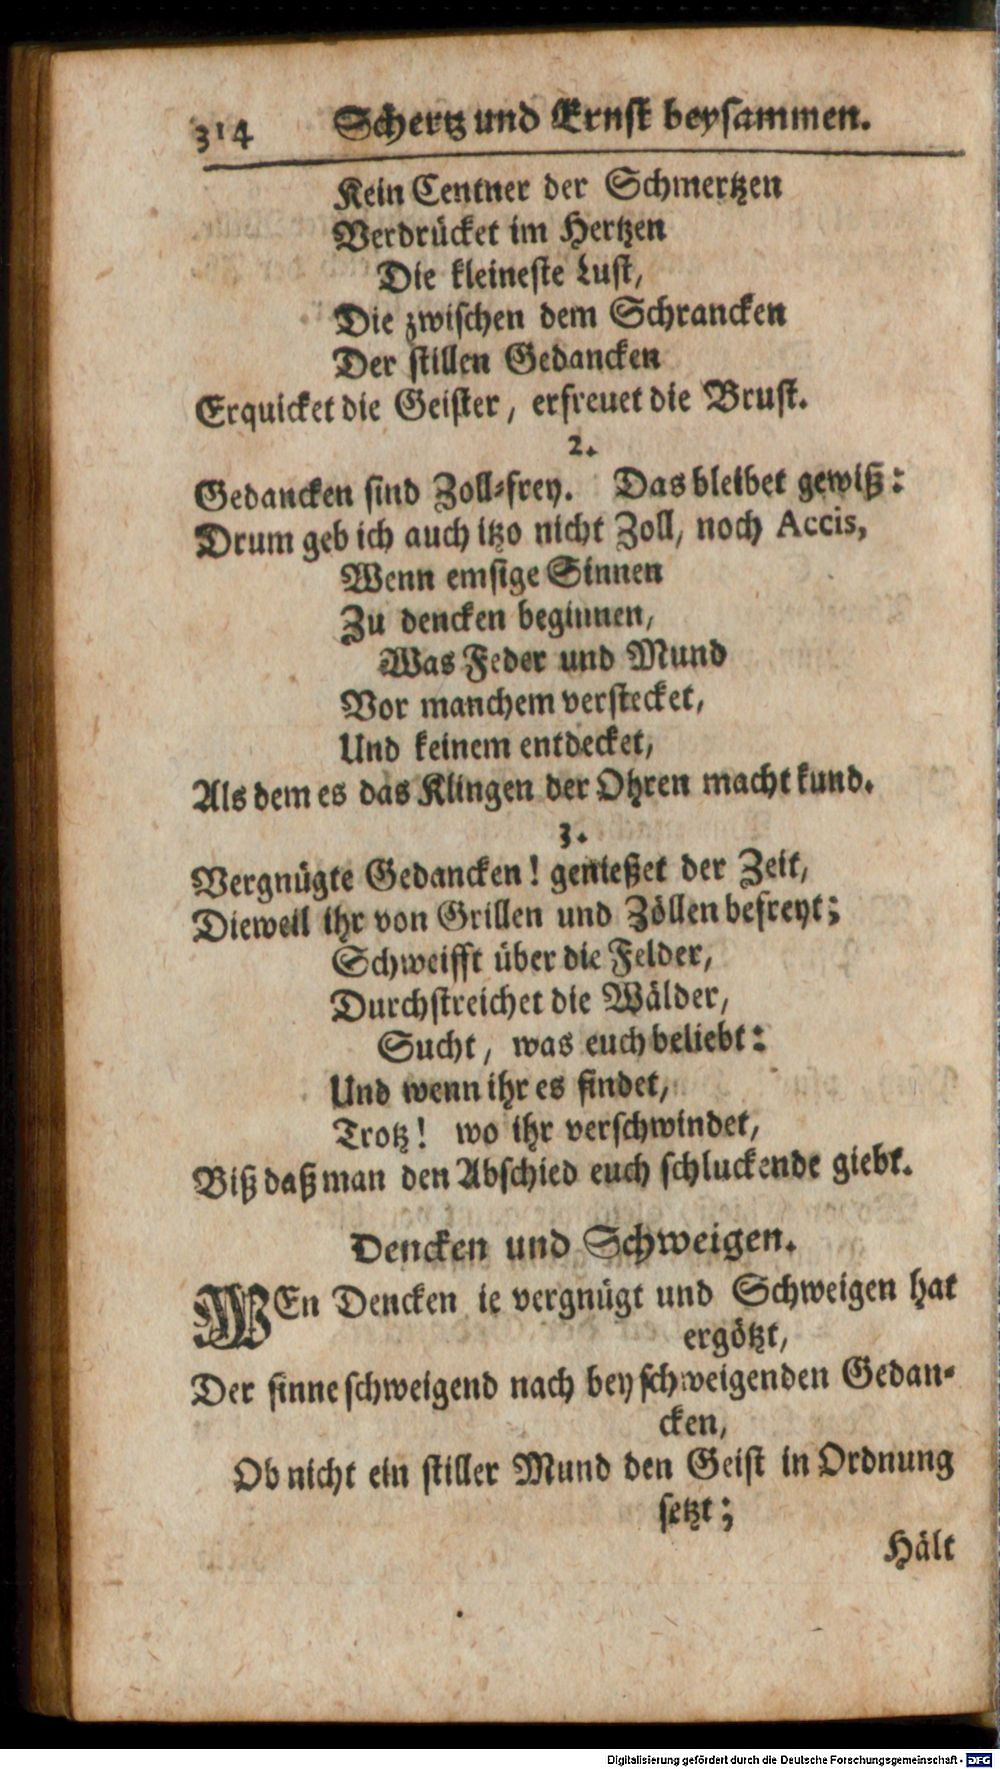 314 Schertz und Ernst beysammen.
Kein Centner der Schmertzen
Verdrücket im Hertzen
Die kleineste Lust,
Die zwischen dem Schrancken
Der stillen Gedancken
Erquicket die Geister, erfreuet die Brust.
2.
Gedancken sind Zoll-frey. Das bleibet gewiß:
Drum geb ich auch itzo nicht Zoll, noch Accis,
Wenn emsige Sinnen
Zu dencken beginnen,
Was Feder und Mund
Vor manchem verstecket,
Und keinem entdecket,
Als dem es das Klingen der Ohren macht kund.
3.
Vergnügte Gedancken! genießet der Zeit,
Dieweil ihr von Grillen und Zöllen befreyt;
Schweifft über die Felder,
Durchstreichet die Wälder,
Sucht, was euch beliebt:
Und wenn ihr es findet,
Trotz! wo ihr verschwindet,
Biß daß man den Abschied euch schluckende giebt.
Dencken und Schweigen.
WEn Dencken ie vergnügt und Schweigen hat
ergötzt,
Der sinne schweigend nach bey schweigenden Gedan-
cken,
Ob nicht ein stiller Mund den Geist in Ordnung
setzt;
Hält
Digitalisierung gefördert durch die Deutsche Forschungsgemeinschaft - DFG